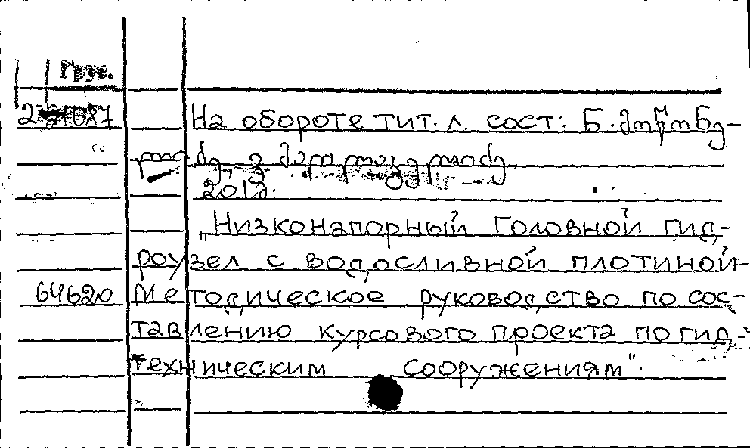 Груз.
На обороте тит. л. сост: Б.
„Низконапорный головной гид-
роузел с водосливной плотиной
64620 Методическое руководство по сос-
тавлению курсового проекта по гид-
техническим сооружениям"